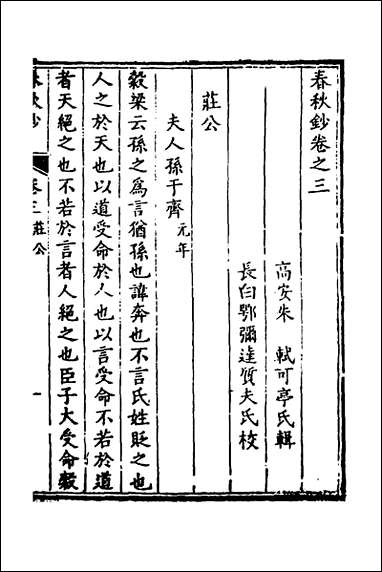 春秋鈔卷之三
高安朱　軾可亭氏輯
長白鄂彌達質夫氏校
莊公
夫人孫于齊元年
穀梁云孫之為言猶孫也諱奔也不言氏姓貶之也
人之於天也以道受命於人也以言受命不若於道
者天絕之也不若於言者人絕之也臣子大受命穀
春秋鈔　卷三莊公　一